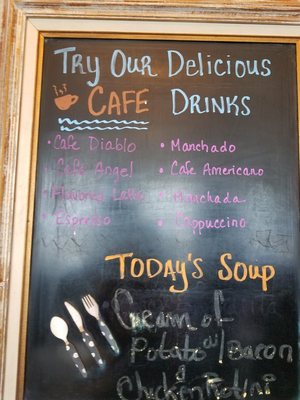 Try Our Delicious
CAFE Drinks
• Cafe Diablo
• Cafe Angel
• Flavored Latte
• Espresso
• Manchado
• Cafe Americano
• Manchada
• Cappuccino
Today's Soup
Cream of
Potato w/ Bacon
&
Chicken